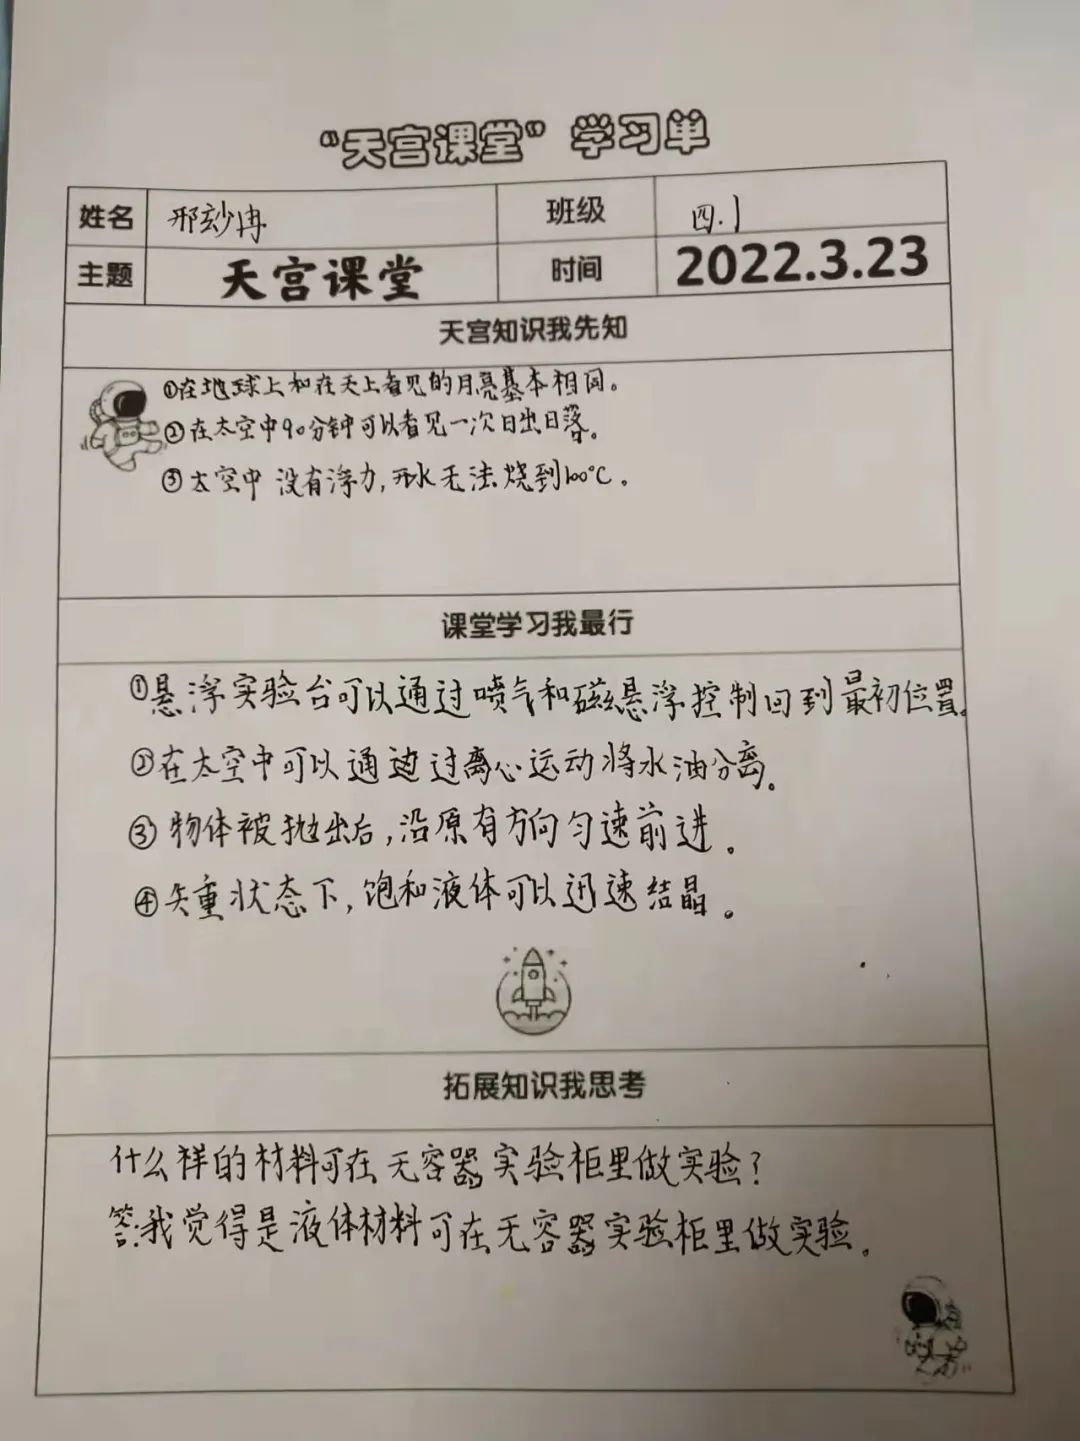 “天宫课堂”学习单
姓名 邢玅冉 班级 四.1
主题 天宫课堂 时间 2022.3.23
天宫知识我先知
①在地球上和在天上看见的月亮基本相同。
②在太空中90分钟可以看见一次日出日落。
③太空中没有浮力,开水无法烧到100℃。
课堂学习我最行
①悬浮实验台可以通过喷气和磁悬浮控制回到最初位置。
②在太空中可以通过过离心运动将水油分离。
③物体被抛出后,沿原有方向匀速前进。
④失重状态下,饱和液体可以迅速结晶。
拓展知识我思考
什么样的材料可在无容器实验柜里做实验?
答:我觉得是液体材料可在无容器实验柜里做实验。